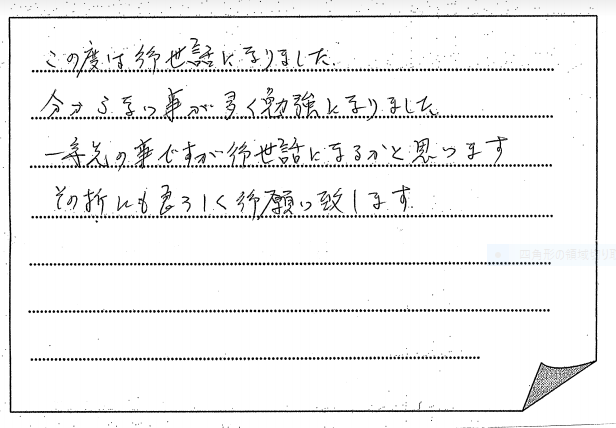 この度は御世話になりました。
分からない事が多く勉強になりました。
一寸先の事ですが御世話になるかと思います
その折にも良ろしく御願い致します。
四角形の領域切り取